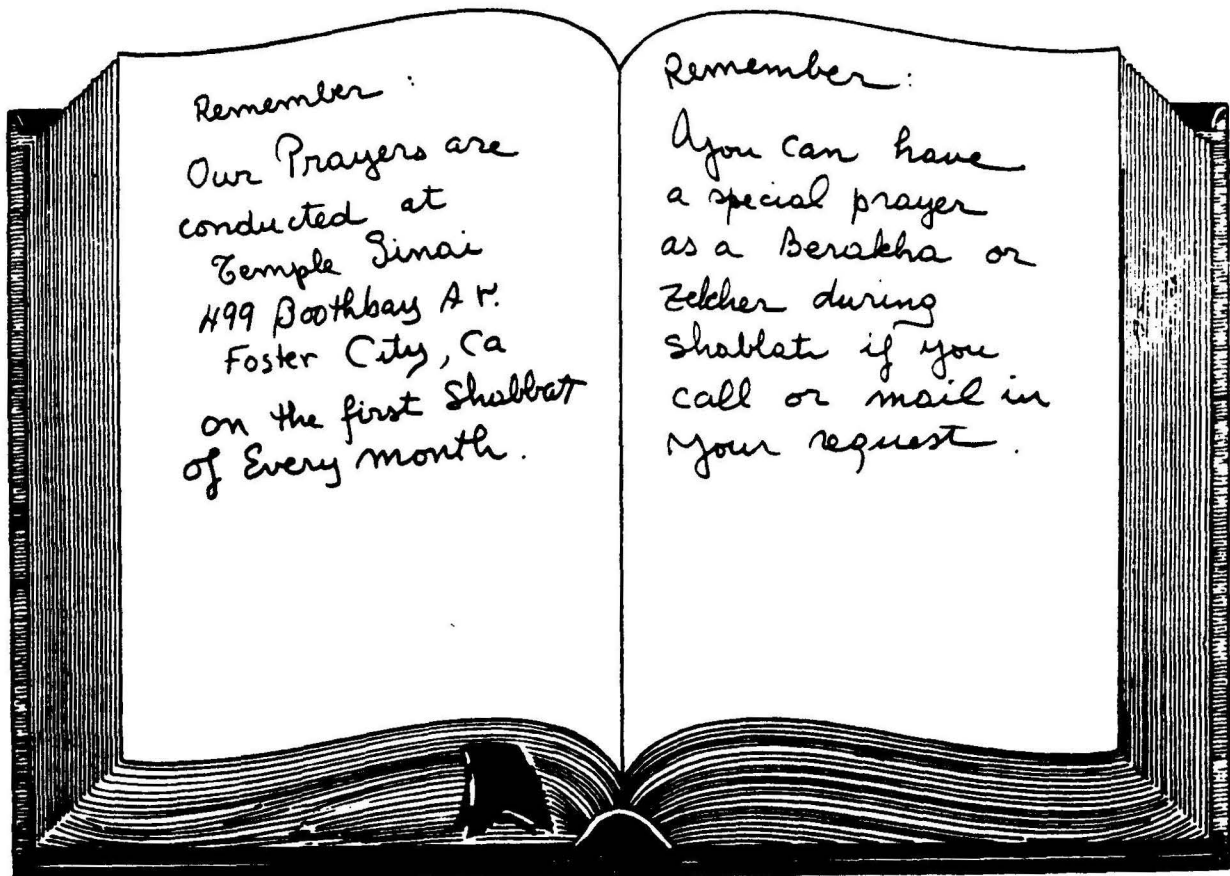 Remember :
Our Prayers are
conducted at
Temple Sinai
499 Boothbay Av.
Foster City, Ca
on the first Shabbat
of Every month.
Remember :
you can have
a special prayer
as a Berakha or
Zekher during
Shabbat if you
call or mail in
your request.